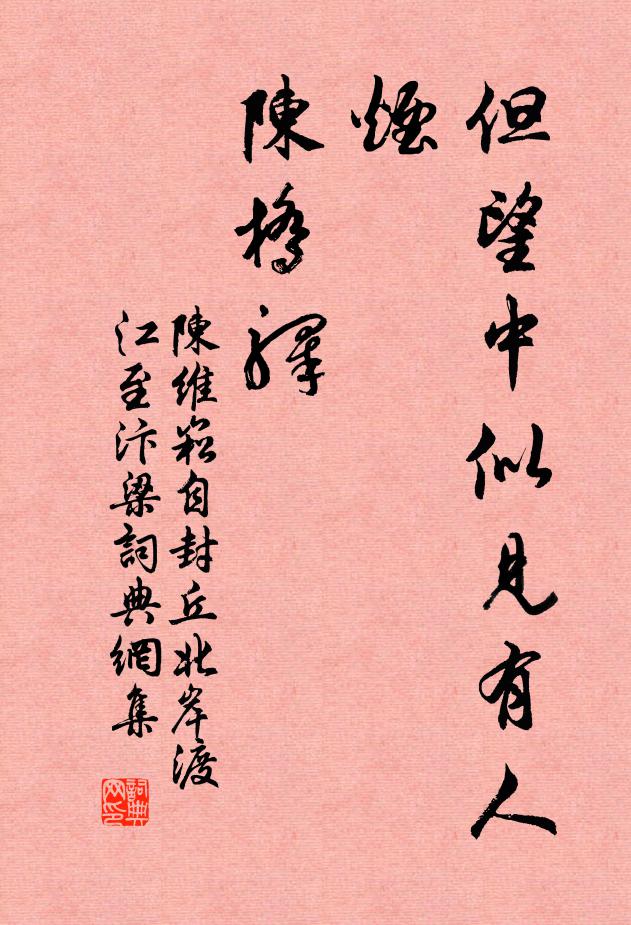 但望中似見有人
煙
陳橋驛
陳維崧自封丘北岸渡
江至汴梁詞典網集
詞典
网印